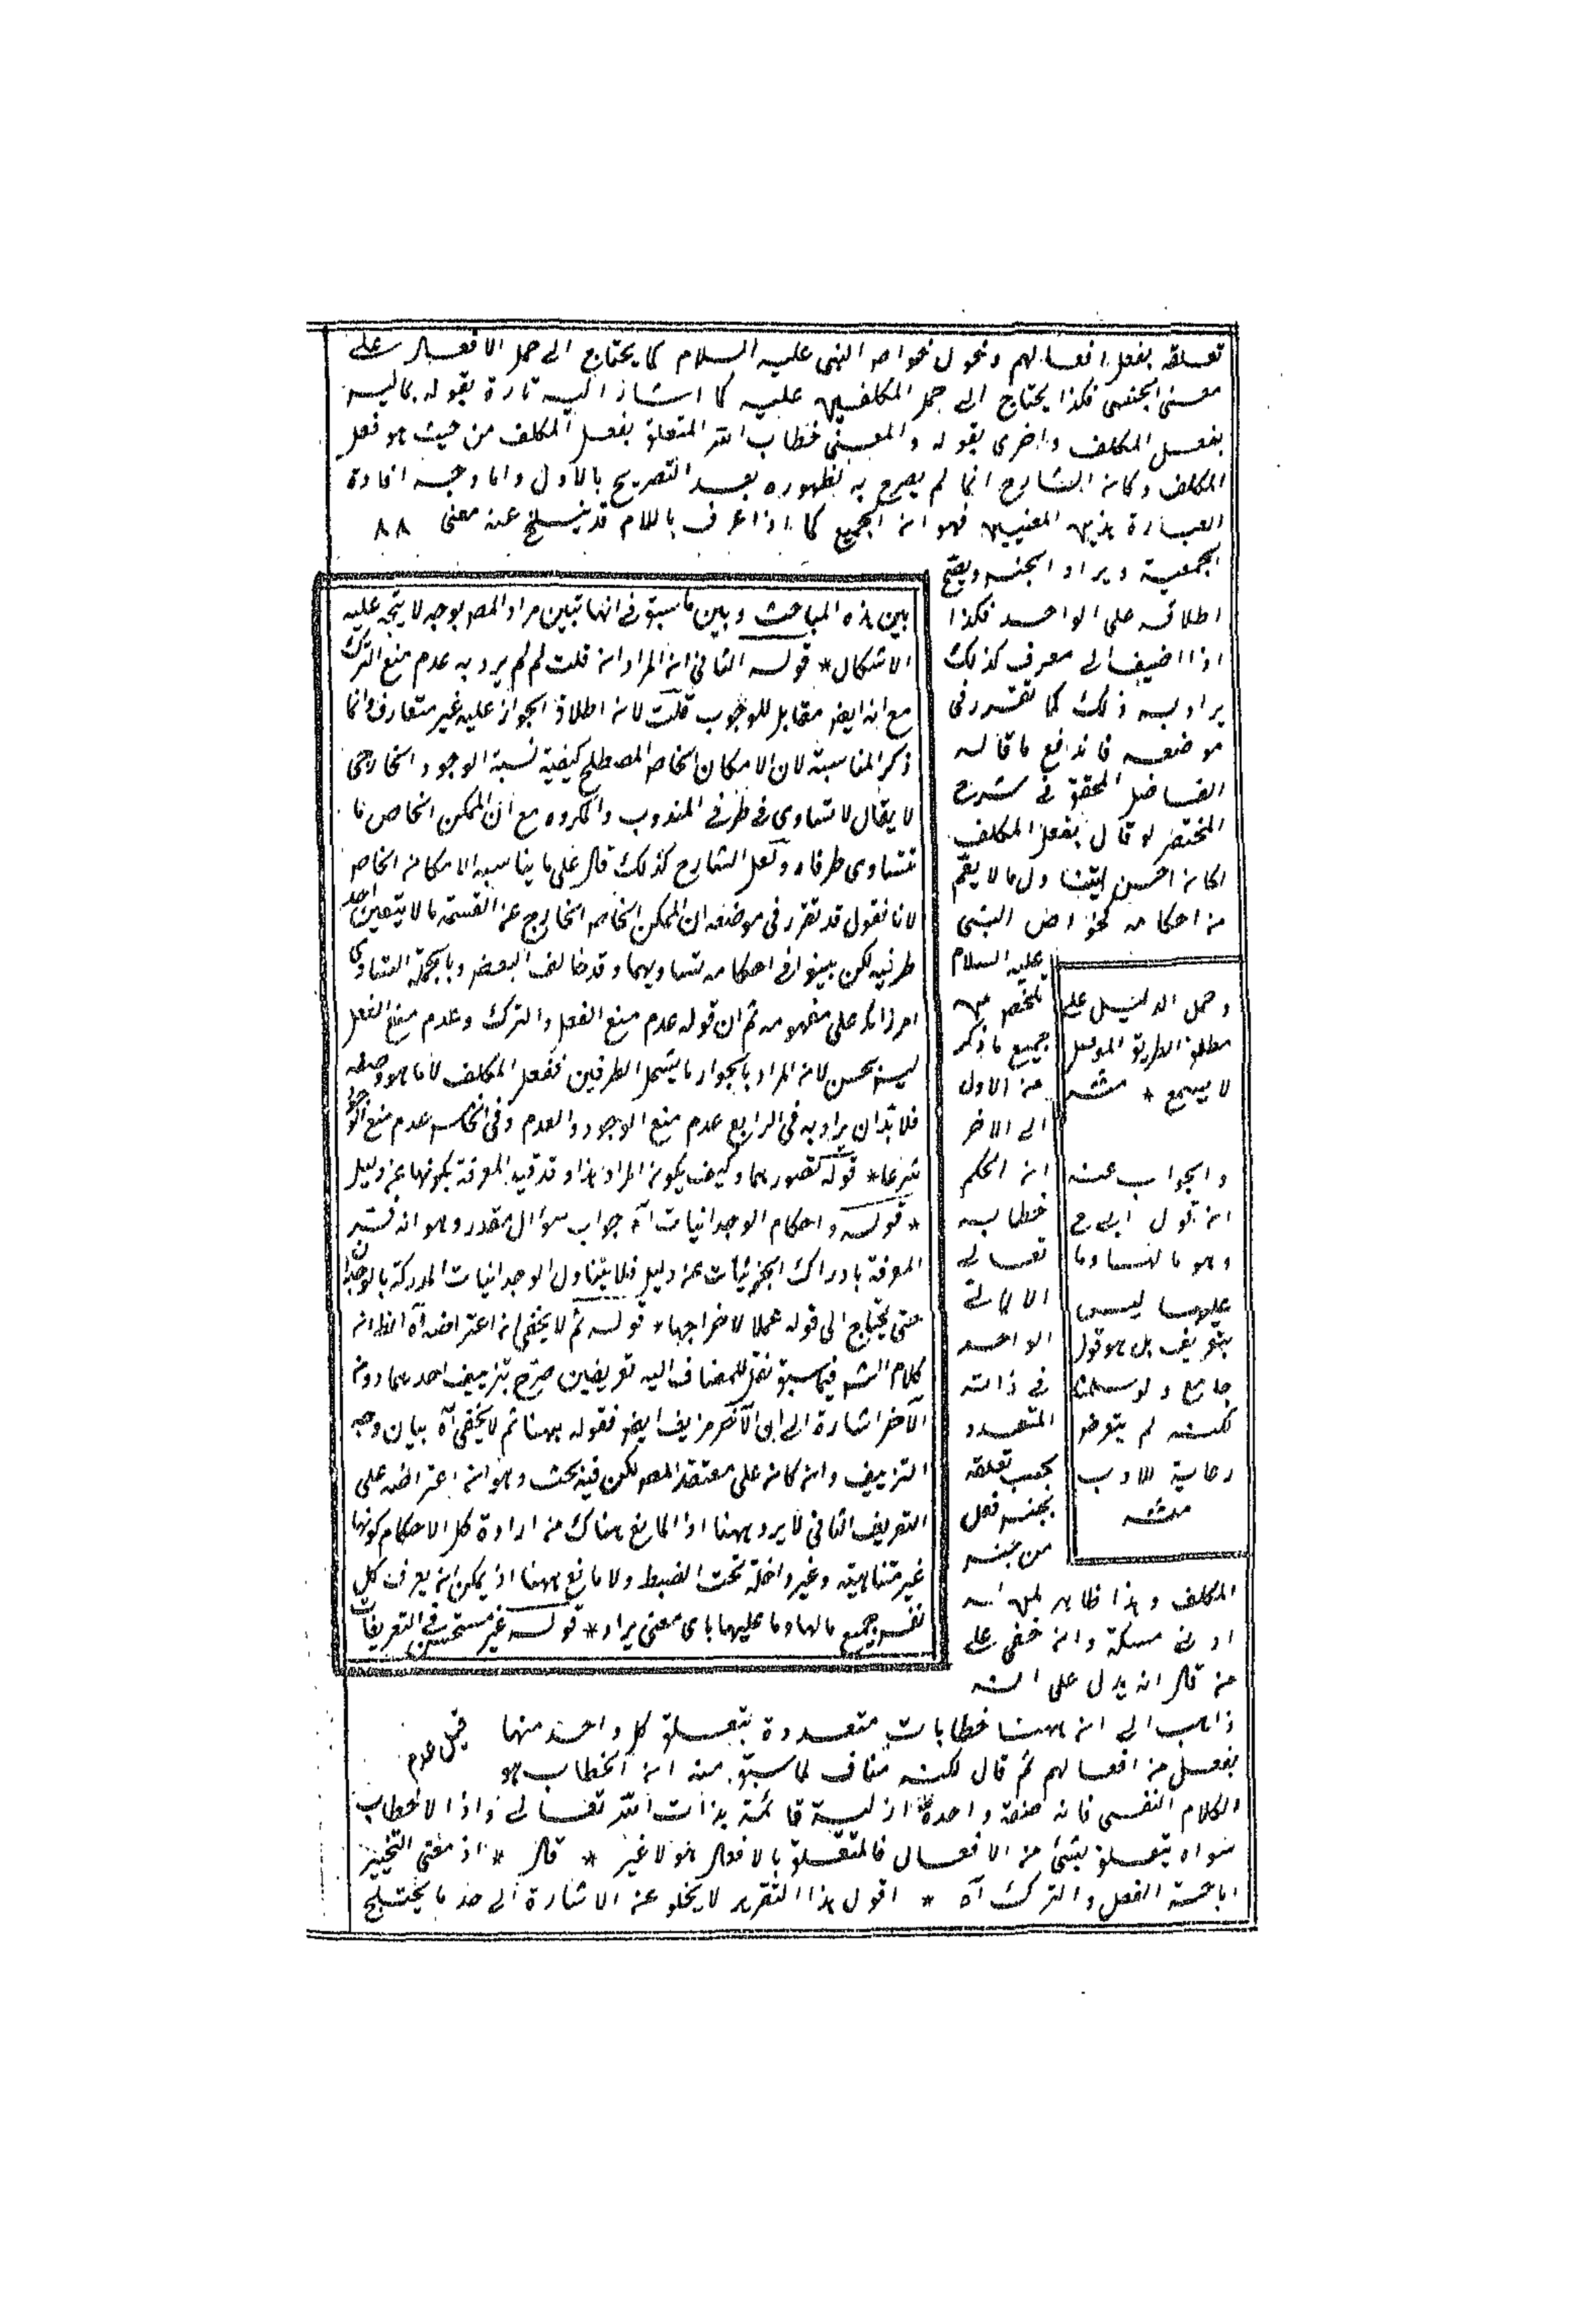 تعلقه بفعل افعالهم ودخول خواص النبى عليه السلام كما يحتاج الى حمل الافعال على
معنى الجنس فكذا يحتاج الى حمل المكلفين عليه كما اشار اليه تارة بقوله بماليس
بفعل المكلف واخرى بقوله والمعنى خطاب الله المتعلق بفعل المكلف من حيث هو فعل
المكلف وكان الشارح انما لم يصرح به لظهوره بعد التصريح بالاول واما وجه افادة
العبارة هذين المعنيين فهو ان الجمع كما اذا عرف باللام قد ينسلخ عنه معنى ٨٨
الجمعية ويراد الجنس ويصح
اطلاقه على الواحد فكذا
اذا اضيف الى معرف كذلك
يراد به ذلك كما تقرر فى
موضعه فاندفع ما قاله
الفاضل المحقق فى شرح
المختصر لو قال بفعل المكلف
لكان احسن ليتناول ما لا يعم
من احكامه كخواص النبى
عليه السلام
تلخص من
جميع ما ذكر
من الاول
الى الاخر
ان الحكم
خطابه
تعالى
الازلى
الواحد
فى ذاته
المتعدد
بحسب تعلقه
بجنس فعل
من جنس
المكلف وهذا ظاهر لمن له
ادنى مسكة وان خفى على
من قال انه يدل على انه
ذاهب الى ان ههنا خطابات متعددة يتعلق كل واحد منها
بفعل من افعالهم ثم قال لكنه مناف لما سبق منه ان الخطاب هو
الكلام النفسى فانه صفة واحدة ازلية قائمة بذات الله تعالى واذا لا خطاب
سواه يتعلق بشئ من الافعال فالمتعلق بالافعال هو لا غير * قال * اذ معنى التخيير
اباحة الفعل والترك آه * اقول هذا التقرير لا يخلو عن الاشارة الى حد ما يختلج
قبل عدم
وحمل الدليل على
مطلق الطريق الموصل
لا يسمع * منه
والجواب عنه
ان قول ابى ح
وهو ما لها وما
عليها ليس
بتعريف بل هو قول
جامع ولو سلمنا
لكنه لم يتعرض
رعاية للادب
منه
بين هذه المباحث وبين ما سبق فى انها تبين مراد المص بوجه لا يتجه عليه
الاشكال * قوله الثانى ان المراد ان قلت لم لم يرد به عدم منع الترك
مع انه ايضا مقابل للوجوب قلت لان اطلاق الجواز عليه غير متعارف وانما
ذكر المناسبة لان الامكان الخاص المصطلح كيفية نسبة الوجود الخارجى
لا يقال لا تساوى فى طرفى المندوب والمكروه مع ان الممكن الخاص ما
تتساوى طرفاه ولعل الشارح كذلك قال على ما يناسبه الامكان الخاص
لانا نقول قد تقرر فى موضعه ان الممكن الخاص الخارج عن القسمة ما لا يتعين احد
طرفيه لكن بينوا فى احكامه تساويهما وقد خالف البعض وبالجملة التساوى
امر زائد على مفهومه ثم ان قوله عدم منع الفعل والترك وعدم منع الفعل
ليس بحسن لان المراد بالجواز ما يشمل الطرفين ففعل المكلف لا ما هو وصفه
فلا بد ان يراد به فى الرابع عدم منع الوجود والعدم وفى الخامس عدم منع الوجود
شرعا * قوله تصورهما وكيف يكون المراد هذا وقد قيد المعرفة بكونها عن دليل
* قوله واحكام الوجدانيات آه جواب سؤال مقدر وهو انه فسر
المعرفة بادراك الجزئيات عن دليل فلا يتناول الوجدانيات المدركة بالوجدان
حتى يحتاج الى قوله عملا لاخراجها * قوله ثم لا يخفى ان اعتراضه آه الظ انه
كلام الش فيما سبق نقل للمضاف اليه تعريفين صرح بتزييف احدهما دون
الآخر اشارة الى ان الآخر مزيف ايضا فقوله ههنا ثم لا يخفى آه بيان وجه
التزييف وان كان على معتقد المص لكن فيه بحث وهو ان اعتراضه على
التعريف الثانى لا يرد ههنا اذ المانع هناك من ارادة كل الاحكام كونها
غير متناهية وغير داخلة تحت الضبط ولا مانع ههنا اذ يمكن ان يعرف كل
نفس جميع ما لها وما عليها باى معنى يراد * قوله غير مستحسن فى التعريفات